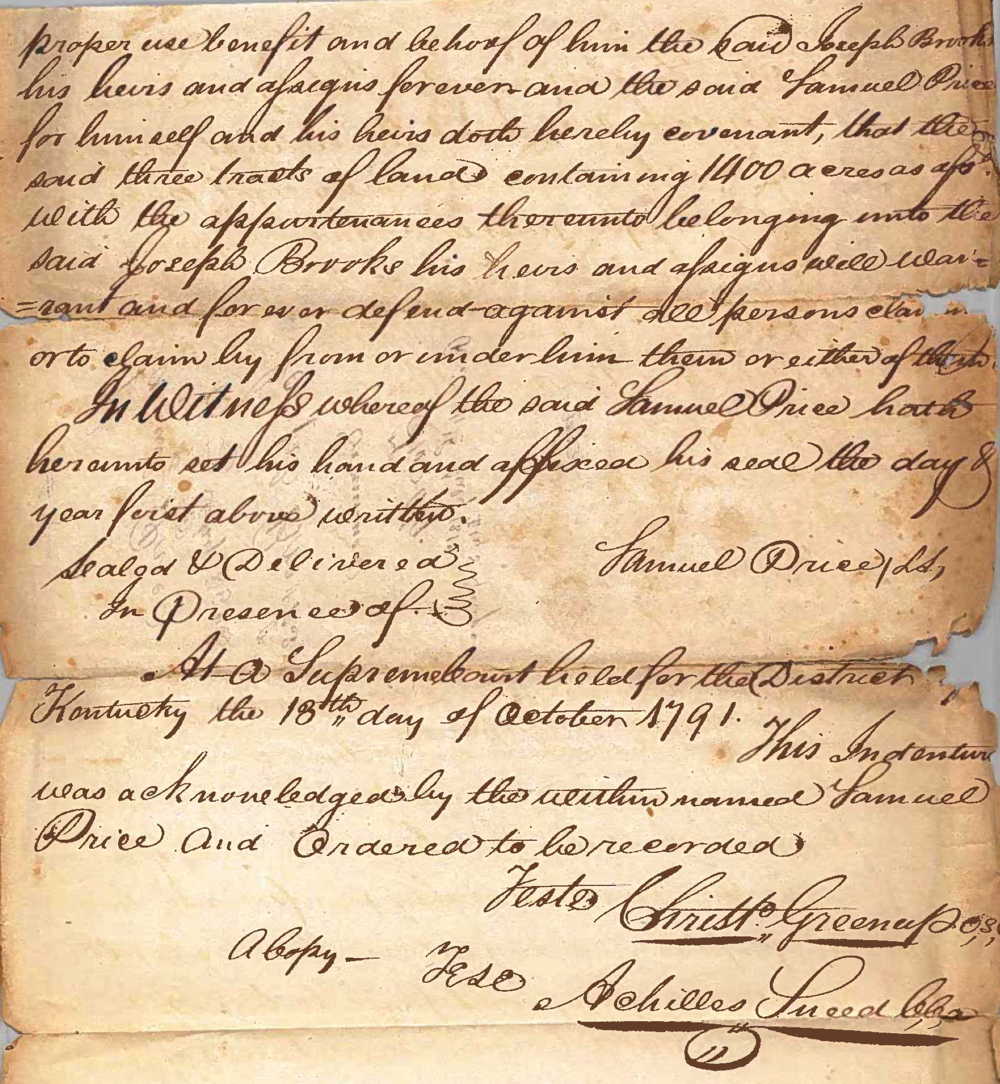 proper use benefit and behoof of him the said Joseph Brooks
his heirs and assigns forever and the said Samuel Price
for himself and his heirs doth hereby covenant, that the
said three tracts of land containing 1400 acres as afsd
with the appurtenances thereunto belonging unto the
said Joseph Brooks his heirs and assigns will war=
=rant and forever defend against all persons claim
or to claim by from or under him them or either of them
In Witness whereof the said Samuel Price hath
hereunto set his hand and affixed his seal the day &
year first above written.
Sealed & Delivered
Samuel Price, LS,
In Presence of
At a Supreme Court held for the District
Kentucky the 18th day of October 1791.
This Indenture
was acknowledged by the within named Samuel
Price and Ordered to be recorded
Teste
Christo. Greenup
A Copy —
Teste
Achilles Sneed